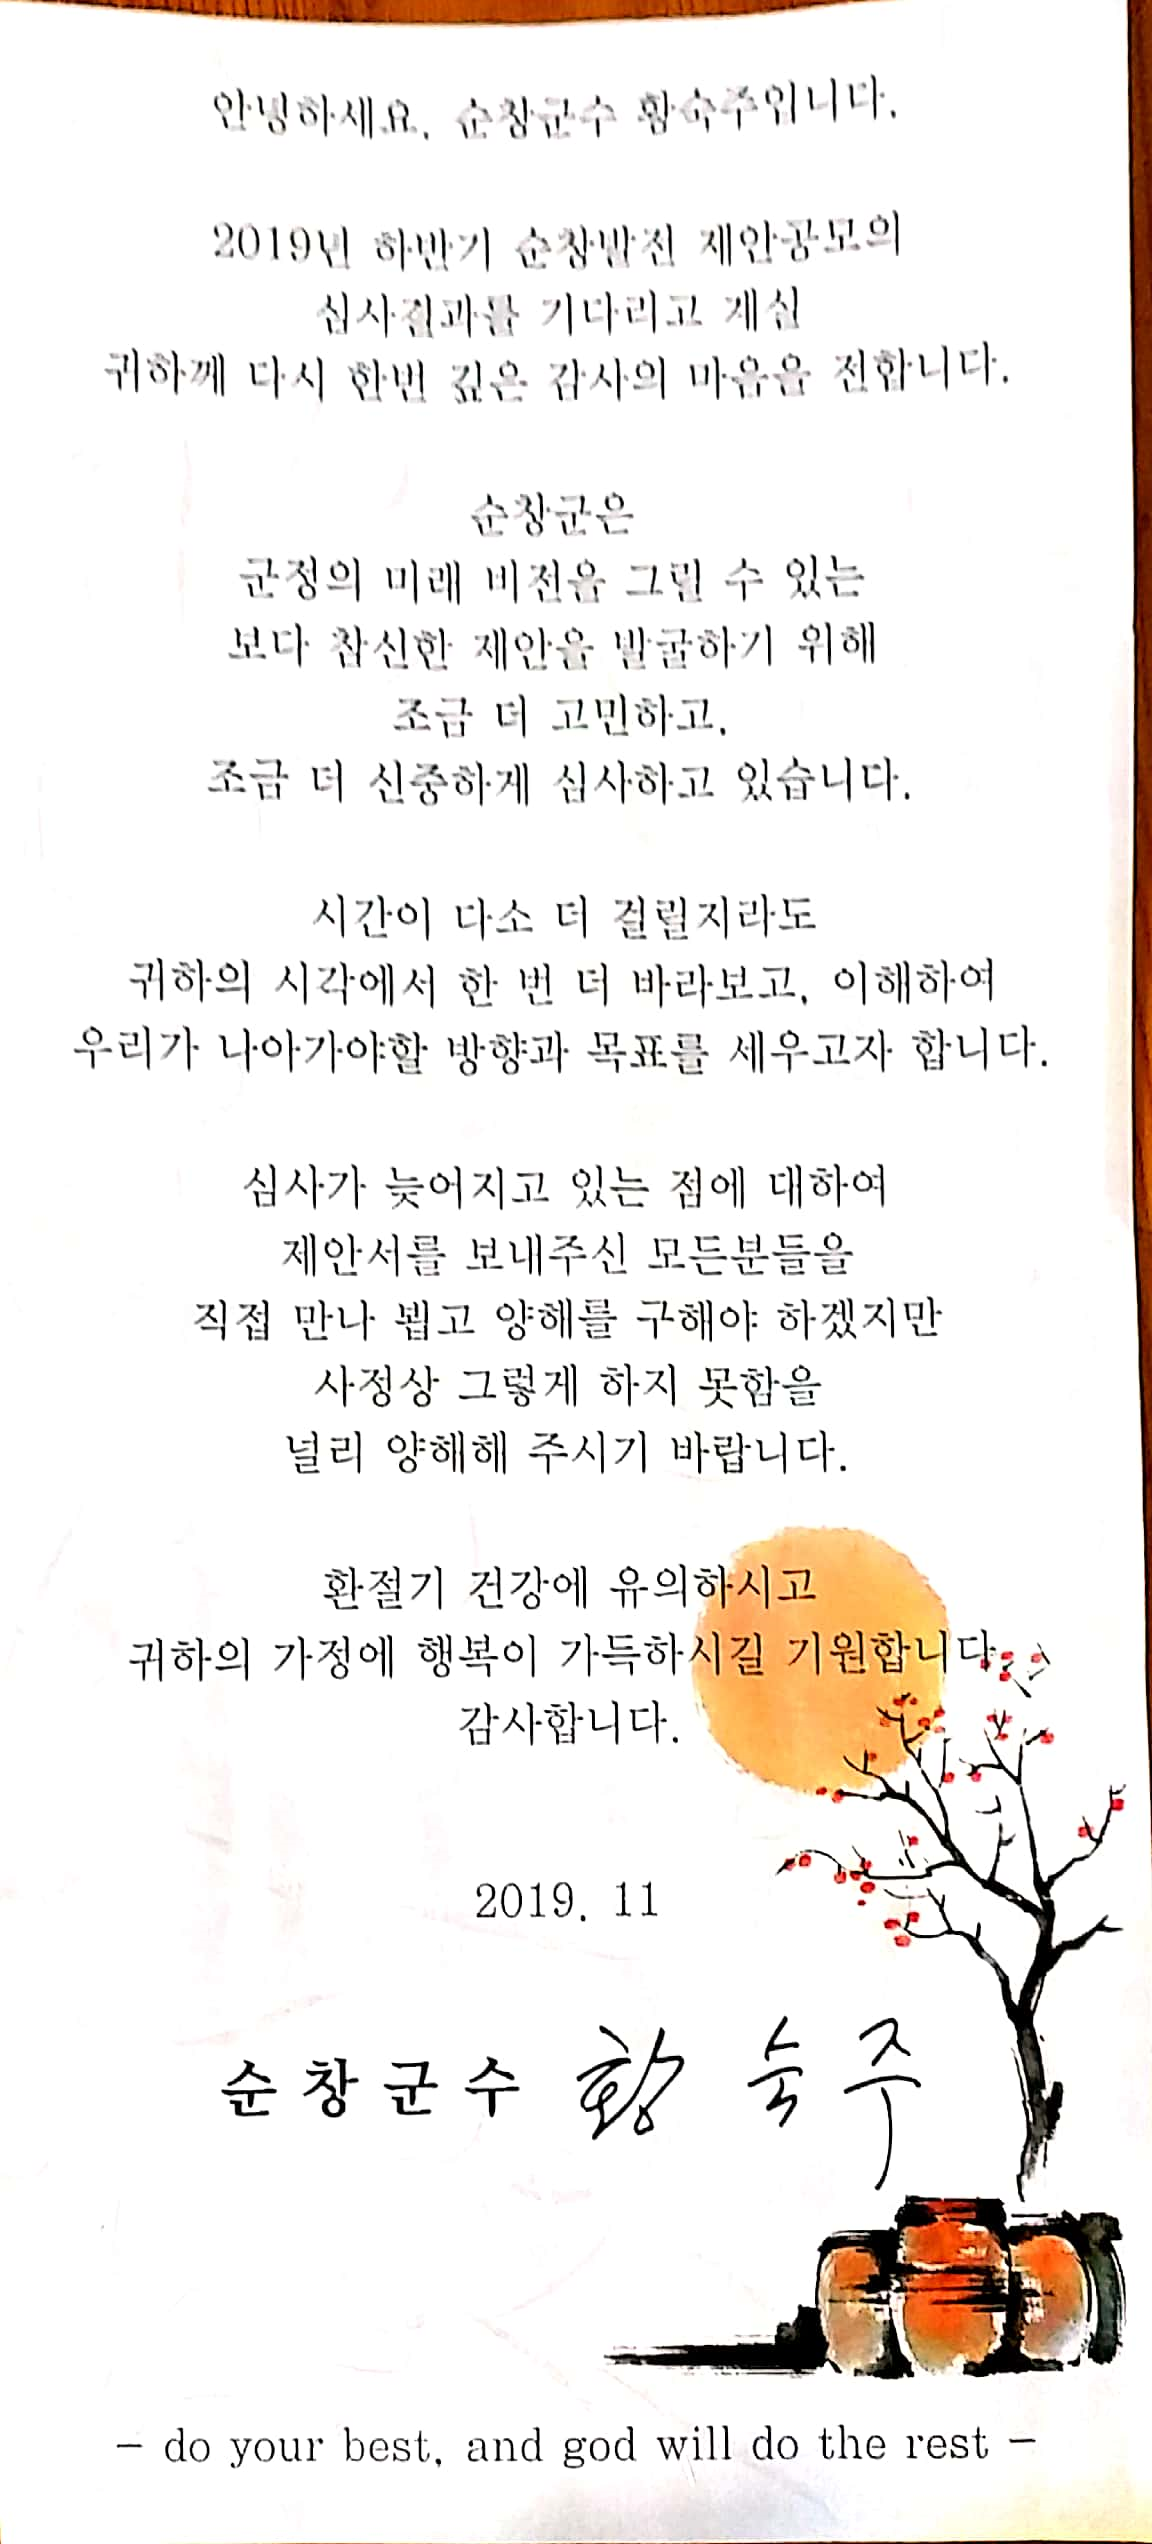 안녕하세요. 순창군수 황숙주입니다.
2019년 하반기 순창발전 제안공모의
심사결과를 기다리고 계실
귀하께 다시 한번 깊은 감사의 마음을 전합니다.
순창군은
군정의 미래 비전을 그릴 수 있는
보다 참신한 제안을 발굴하기 위해
조금 더 고민하고,
조금 더 신중하게 심사하고 있습니다.
시간이 다소 더 걸릴지라도
귀하의 시각에서 한 번 더 바라보고, 이해하여
우리가 나아가야할 방향과 목표를 세우고자 합니다.
심사가 늦어지고 있는 점에 대하여
제안서를 보내주신 모든분들을
직접 만나 뵙고 양해를 구해야 하겠지만
사정상 그렇게 하지 못함을
널리 양해해 주시기 바랍니다.
환절기 건강에 유의하시고
귀하의 가정에 행복이 가득하시길 기원합니다.
감사합니다.
2019. 11
순창군수 황숙주
- do your best, and god will do the rest -